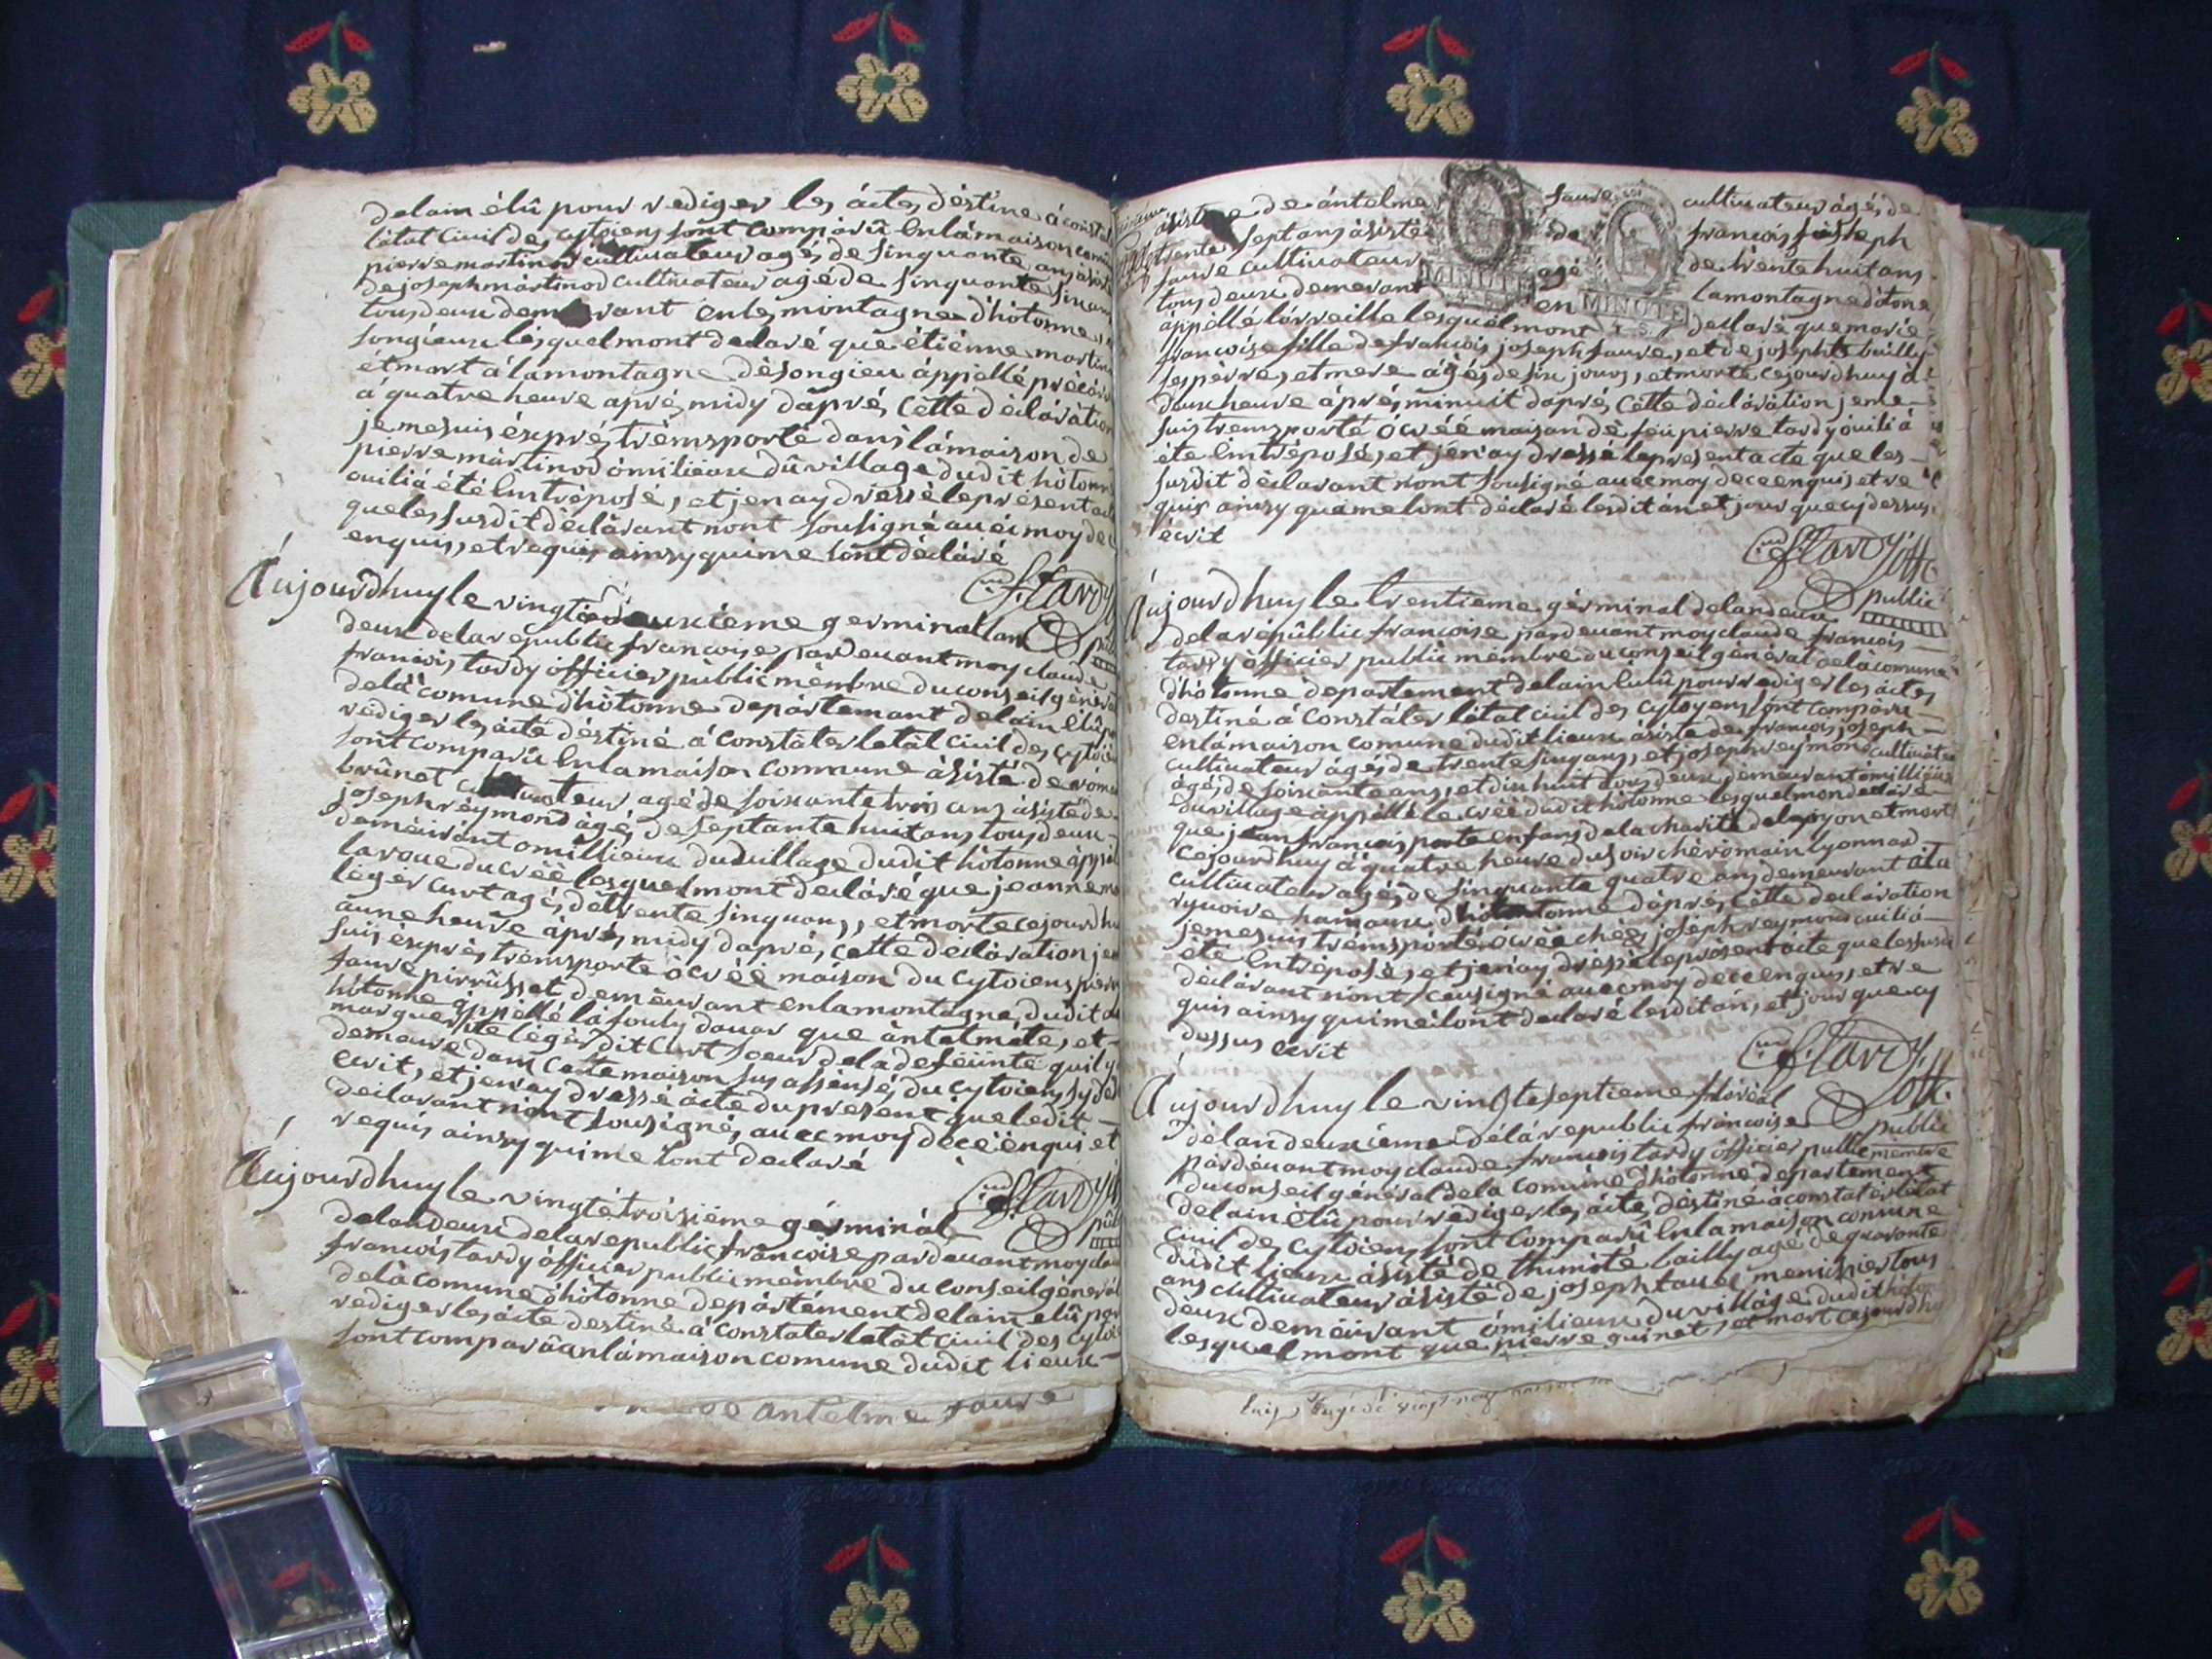 delain élû pour rediger lesácte, déstine á constat
látat civil des cytoiens sont comparû enlámaison com
pierre martinod cultivateur agé, de sinquante ans asisté
de joseph mártinod cultivateur agé de sinquante sixans
tous deux demeurant en les montagne d'hótonne,
songieux lesquel mont déclaré que étiénne martin
ét mort á lamontagne désongieu áppellé
á quatre heure aprés, midy dáprés, cétte déclárátion
je mesuis éxprés, trémsporté dans lámaison de
pierre mártinod ómilieux dû village dudit hótonne
ouiliá été éntréposé, et jen ay dressé le présent act
que les susdit déclárant nont sousigné avec moy de c
enquis, et requis ainsy quime lont déclaré
Áujourdhuy le vingtédeuxiéme germinal lan
deux de la république francoise par devant moy claude
francois, tardy ófficier públic mémbre du conseil géneral
delá comune d'hótonne depártemant delain élû p
rédiger les, ácte déstiné á constáter letát civil des, cytoie
sont comparû enlamaison commune ásisté de roma
brûnet cultivateur agé de soixante trois ans asisté de
joseph réymond ágé, de septante huit ans tous deux
deméurant omillieux du dvillage dudit hótonne áppel
laroue du créé lesquel mont declaré que jeanne ma
léger curt agé, de trente sinq ans,, et morte cejourd'hu
áune heure áprés, midy daprés, cétte déclárátion je m
suis éxprés, trémsporté ócréé maison du cytoiens pierre
faure pirrûsset deméurant en lamontagne, dudit d
hótonne áppellé láfouly
marguerite légér dit curt soeur delá deféûnté quil y
demeure dans cette maison sus assénsé, du cytoiens sydes
écrit, et jen ay dressé ácte du present que ledit
declarant nont sousigné, avec moy décéénquis et
requis ainsy quime lont declaré
f. tardy
Áujourdhuy le vingtétroisiéme gérminál
delandeux delarepublic francoise par devant moy clau
francois tardy ófficier public mémbre du conseil général
delácomune d'hótonne depártément delain élû pour
rediger les, ácte destiné á constater létát civil des cytoie
sont comparû anlamaison comune dudit lieux
de antelme faure
ásisté de ántelme faure cultivateur ágé, de
trente sept ans ásisté de francois joseph
faure cultivateur agé de trente huit ans
tous deux demeurant en lamontagne dótone
áppéllé lórveille lesquél mont declaré que marie
francoise fille de francois joseph faure, et de josephte bailly
ses pérre, et mere ágés de six jours, et morte cejourdhuy á
deux heure áprés, minuit dáprés, cétte déclárátion je me
suis tremsporté ócréé maison dé feû pierre tardy óuiliá
éte éntréposé, et jenay dréssé le present acte que les
susdit déclarant nont sousigné avec moy décéenquis et re
quis ainsy quáme lont déclaré les dit án et jour que cy dessus,
écrit
MINUTE
MINUTE
f. tardy off.
public
Áujourdhuy le trentiéme gérminal delandeux
delarépûblic francoise par devant moy claude francois
tardy ófficier public mémbre du conseil général delácomune
dhótonne départément delain élû pour rediger les áctes
destiné á constáter létat civil des cytoyens sont comparu
enlámaison comune dudit lieux ásisté de francois joseph
cultivateur ágé, de trente sinq ans, et joseph reymond cultivateur
ágé, de soixante ans, et dix huit tous deux démeurant ómillieux
du village áppéllé le créé dudit hótonne lesquel mon declaré
que jean francois porte enfans de la charité delyon et mort
cejourdhuy á quatre heure du soir ché romain lyonnard
cultivateur agé, de sinquante quatre ans demeurant ala
rynoire hamaux dhótonne dáprés, cétte declaration
je me suis trémsporté ócréé chéz joséph reymond ouiliá
été éntréposé, et jenay dréssé le présent acte que les susdit
déclárant nont sousigné avec moy décéenquis, et re
quis ainsy quimeílont declaré les dit an, et jour que cy
dessus écrit
f. tardy
off.
public
Áujourdhuy le vingtéséptieme floréal
délandeuxiéme délárepublic francoise
pardévant moy claude francois tardy ófficier public membre
du conseil général dela comune dhótonne départément
delain élû pour rediger les, ácte, déstiné á constatér létat
civil des cytoiens sont comparû enlamaison comune
dudit lieux ásisté de thimoté bailly agé de quarante
ans cultivateur ásisté de joseph tavel menisier tous
deux deméurant ómilieux du village dudit hótonne
lesquel mont que pierre guinet, et mort cejourdhuy